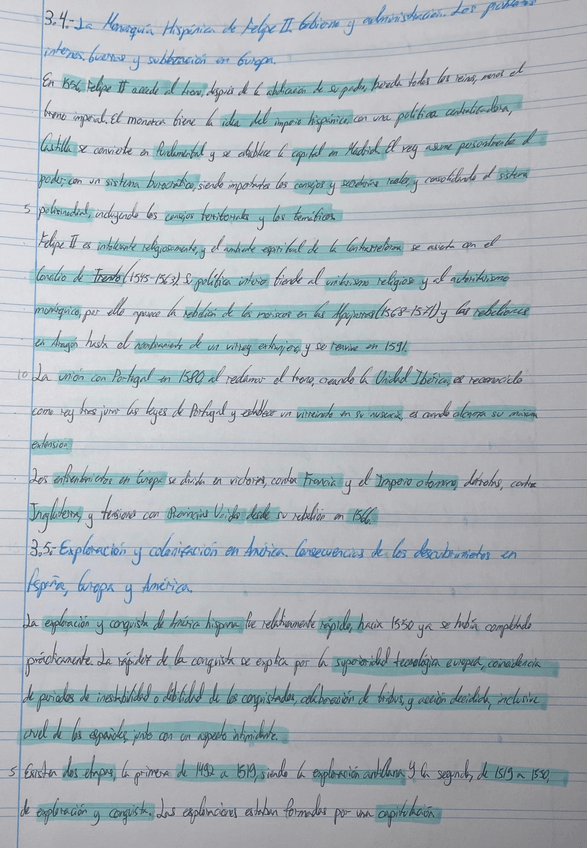 3.4.- La Monarquía Hispánica de Felipe II. Gobierno y administración. Los problemas
internos. Guerras y sublevación en Europa.
En 1556, Felipe II accede al trono, después de la abdicación de su padre, hereda todos los reinos, menos el
trono imperial. El monarca tiene la idea del imperio hispánico, con una política centralizadora,
Castilla se convierte en fundamental y se establece la capital en Madrid. El rey asume personalmente el
poder con un sistema burocrático, siendo importantes los consejos y secretarios reales y consolidando el sistema
5 polisinodial, incluyendo los consejos territoriales y los temáticos.
Felipe II es intolerante religiosamente, y el ambiente espiritual de la Contrarreforma se asienta con el
Concilio de Trento (1545-1563). Su política interior tiende al unitarismo religioso y al autoritarismo
monárquico, por ello aparece la rebelión de los moriscos en las Alpujarras (1568-1571) y las rebeliones
en Aragón hasta el nombramiento de un virrey extranjero y se reaviva en 1591.
10 La unión con Portugal en 1580, al reclamar el trono, creando la Unidad Ibérica, es reconocido
como rey tras jurar las leyes de Portugal y establecer un virreinato en su ausencia, es cuando alcanza su máxima
extensión.
Los enfrentamientos en Europa se dividen en victorias, contra Francia y el Imperio otomano, derrotas, contra
Inglaterra, y tensiones con Provincias Unidas desde su rebelión en 1566.
3.5.- Exploración y colonización en América. Consecuencias de los descubrimientos en
España, Europa y América.
La exploración y conquista de América hispana fue relativamente rápida, hacia 1550 ya se había completado
prácticamente. La rapidez de la conquista se explica por la superioridad tecnológica europea, coincidencia
de periodos de inestabilidad o debilidad de los conquistados, colaboración de tribus, y acción decidida, inclusive
cruel de los españoles, junto con un aspecto intimidante.
5 Existen dos etapas, la primera de 1492 a 1519, siendo la exploración antillana y la segunda, de 1519 a 1550,
de exploración y conquista. Las exploraciones estaban formadas por una capitulación